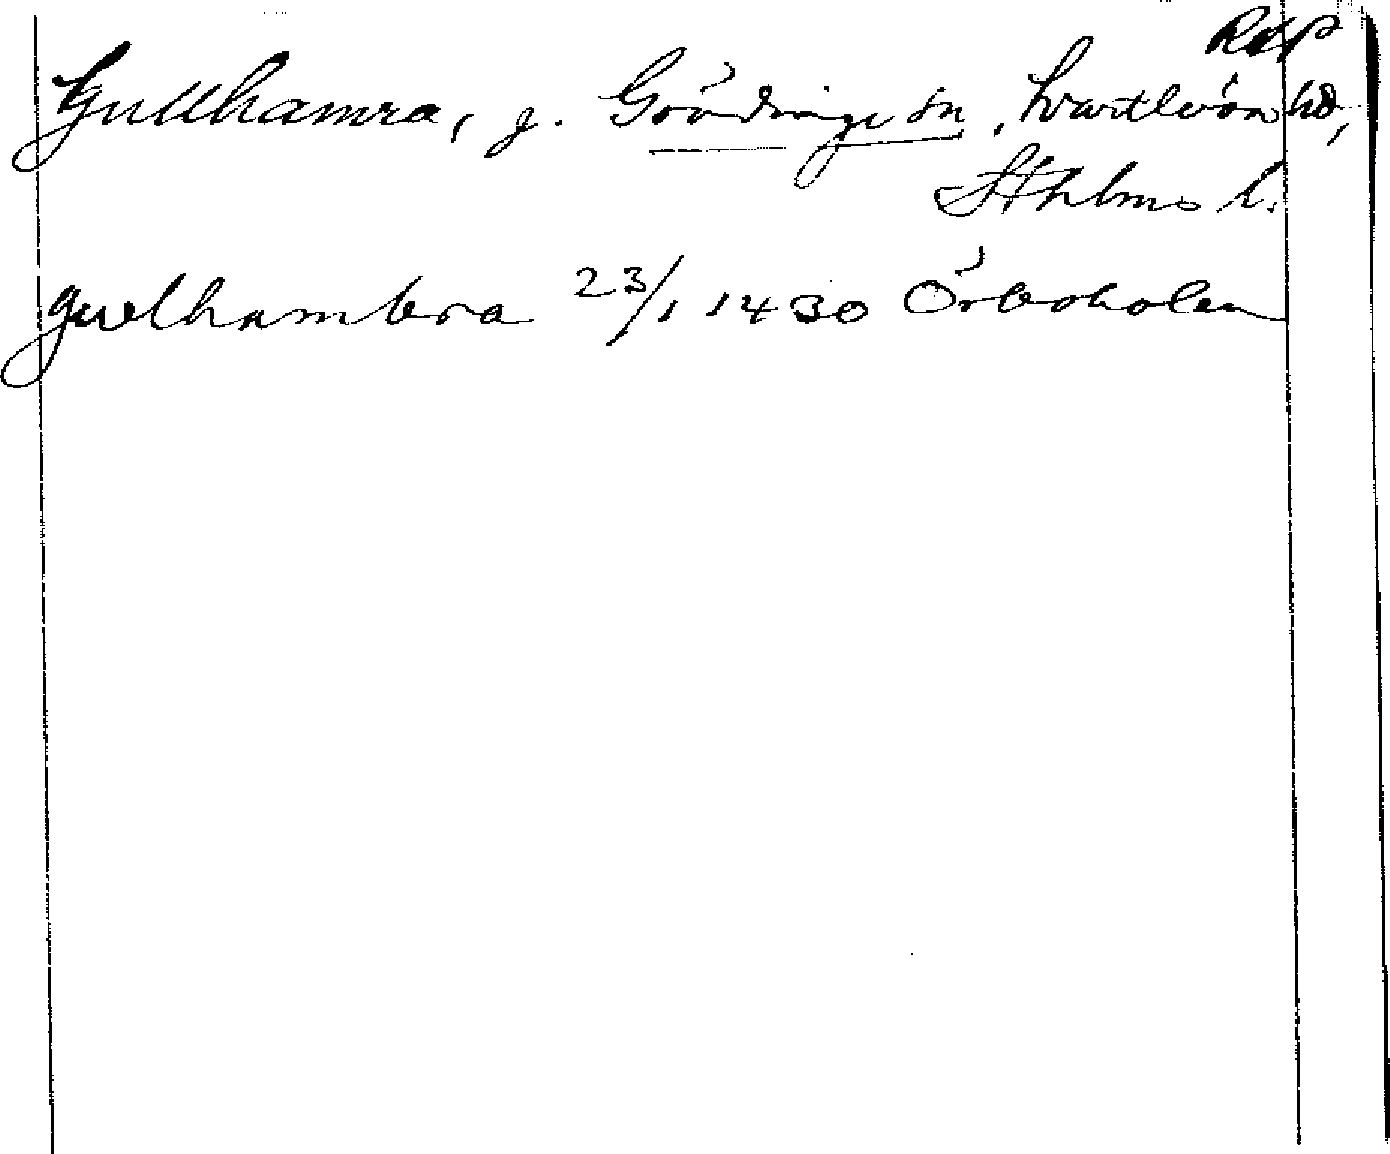 RAP
Gullhamra, g. Grödinge sn, Svartlösa hd,
Sthlms l.
gwlhambra 23/1 1430 Örboholm